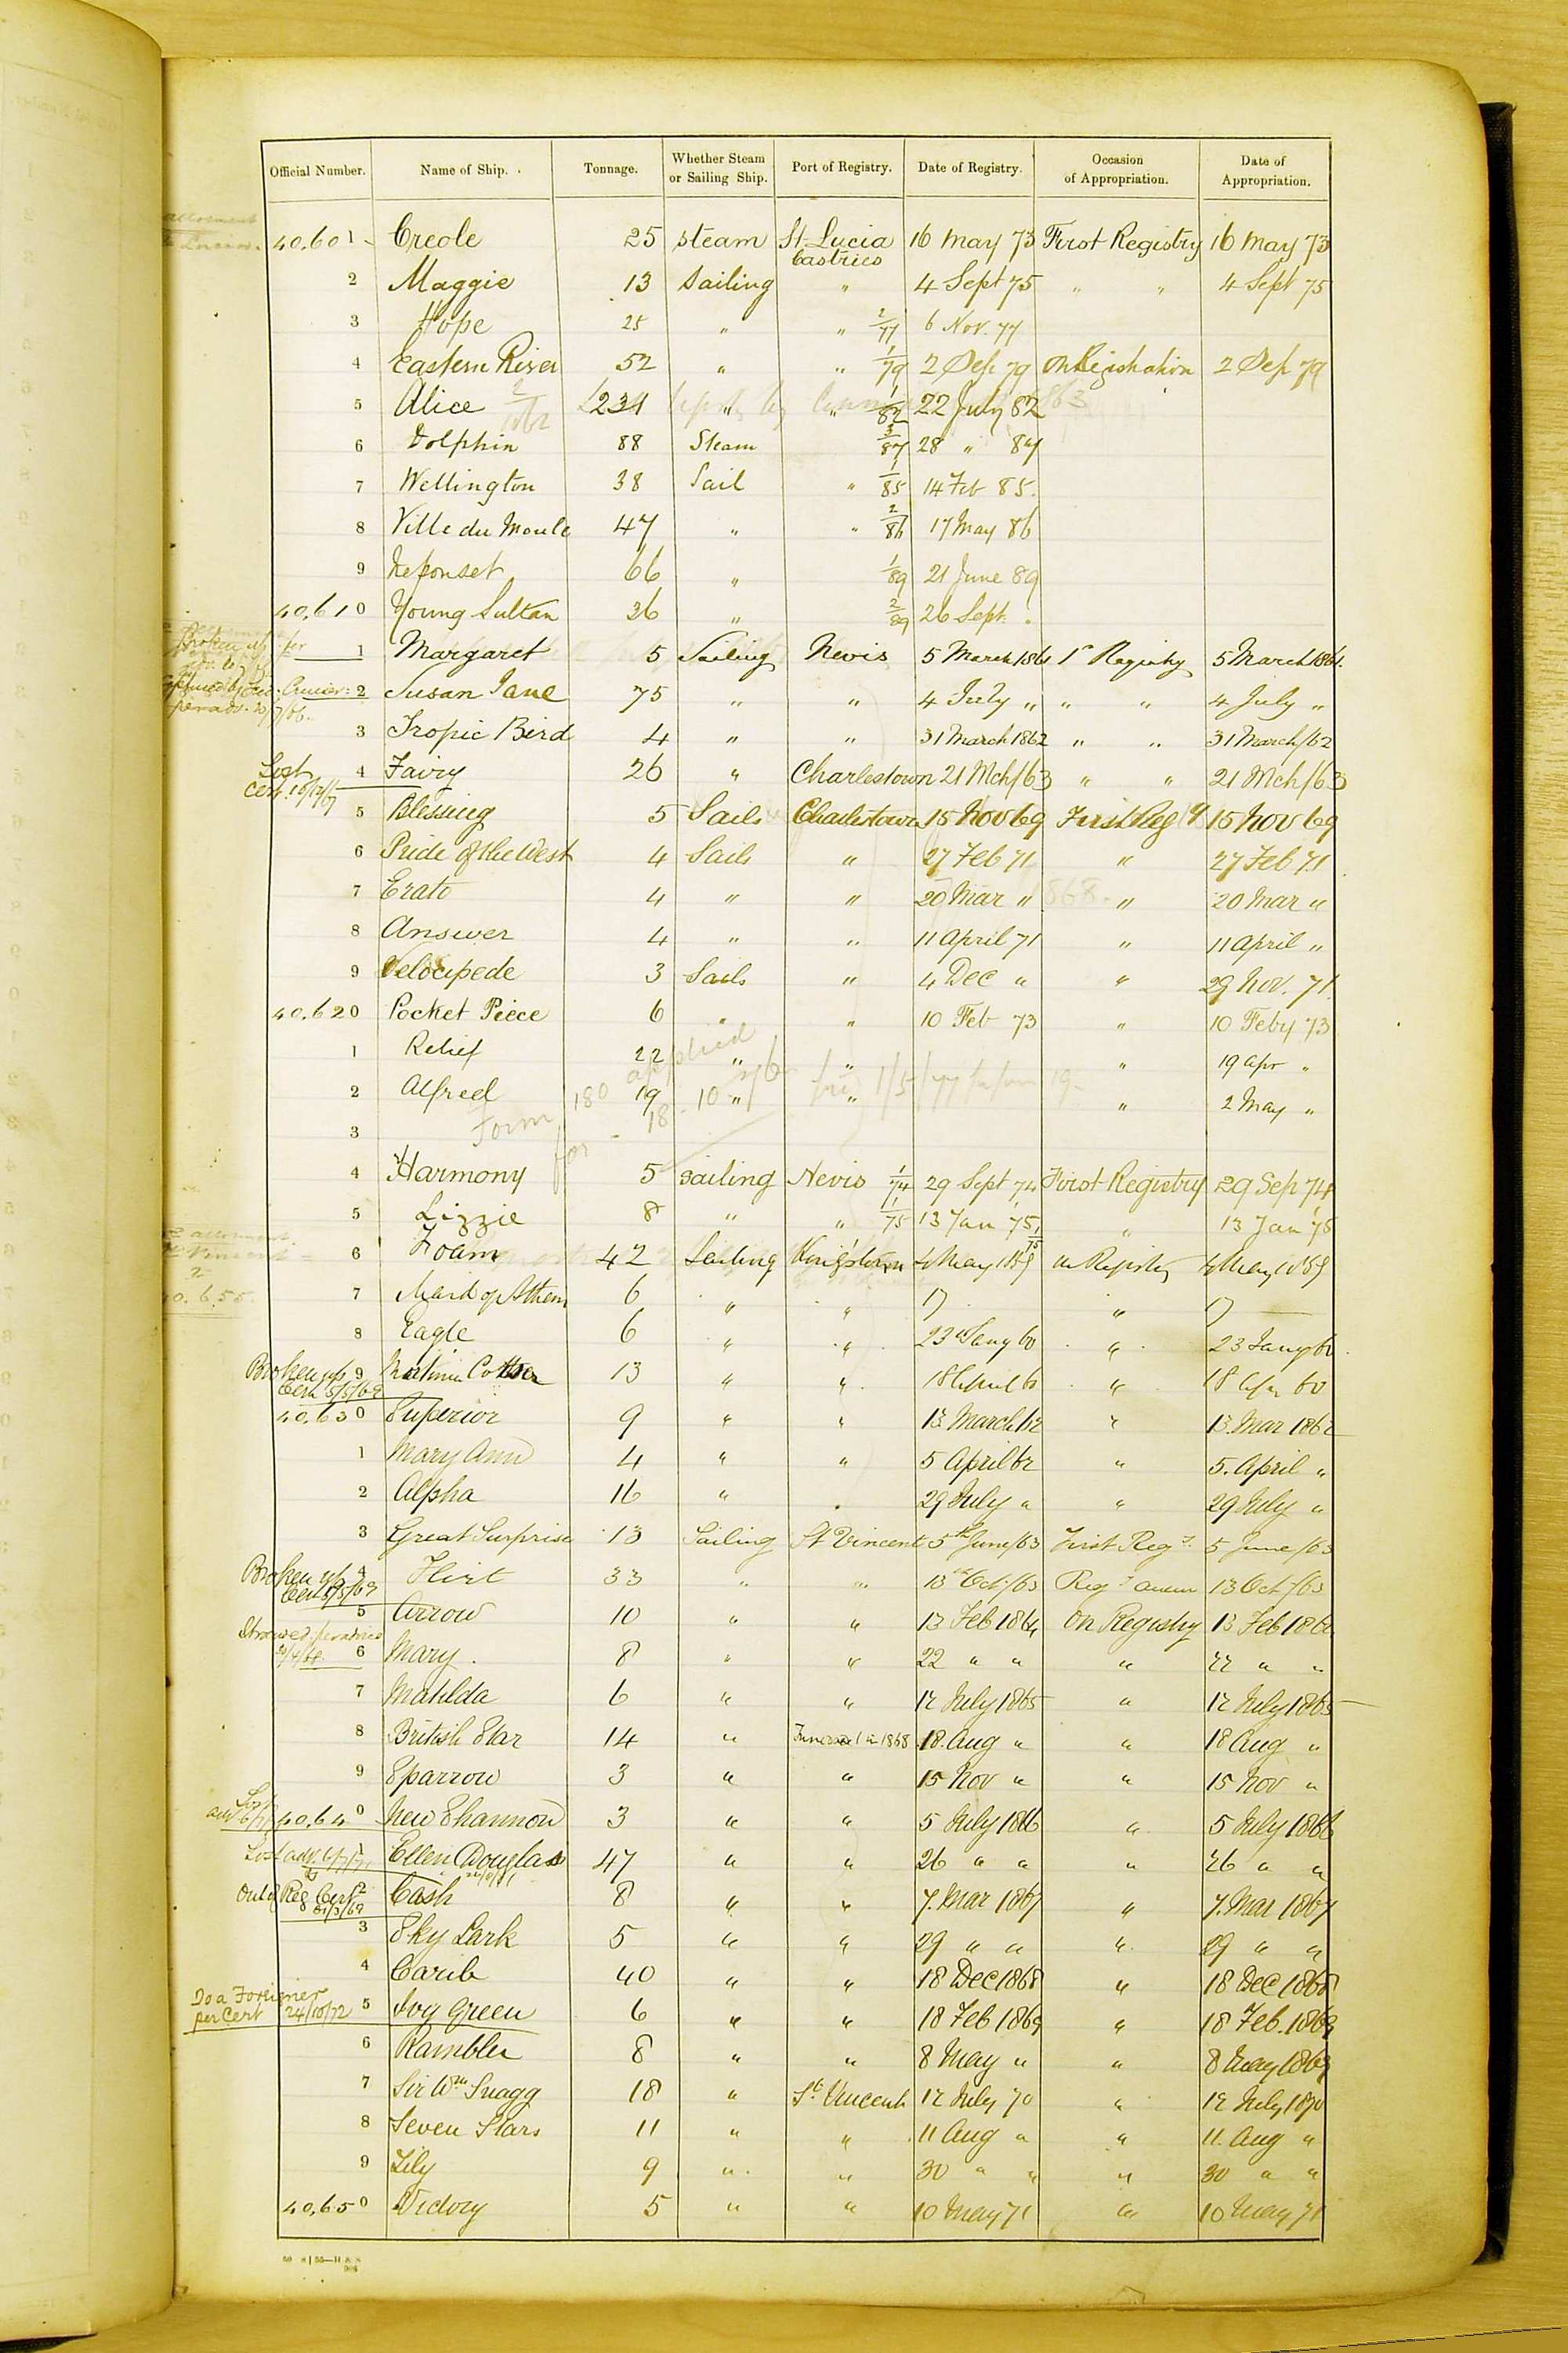 Official Number. Name of Ship. Tonnage. Whether Steam or Sailing Ship. Port of Registry. Date of Registry. Occasion of Appropriation. Date of Appropriation.
40,601 Creole 25 steam St. Lucia Castries 16 May 73 First Registry 16 May 73
2 Maggie 13 Sailing " 4 Sept 75 " " 4 Sept 75
3 Hope 25 " " 2/77 6 Nov. 77
4 Eastern River 52 " " 1/79 2 Sep 79 On Registration 2 Sep 79
5 Alice 231 " " 1/82 22 July 82
6 Dolphin 88 Steam 3/87 28 " 87
7 Wellington 38 Sail " 1/85 14 Feb 85.
8 Ville du Moule 47 " " 2/86 17 May 86
9 Neponset 66 " 1/89 21 June 89
40,610 Young Sultan 36 " 2/89 26 Sept. "
Broken up per
1 Margaret 5 Sailing Nevis 5 March 1861 1st Registry 5 March 1861.
2 Susan Jane 75 " " 4 July " " " 4 July "
3 Tropic Bird 4 " " 31 March 1862 " " 31 March/62
Lost Cert. 4 Fairy 26 " Charlestown 21 Mch/63 " " 21 Mch/63
5 Blessing 5 Sails Charlestown 15 Nov 69 First Reg 15 Nov 69
6 Pride of the West 4 Sails " 27 Feb 71 " 27 Feb 71
7 Erato 4 " " 20 Mar " " 20 Mar "
8 Answer 4 " " 11 April 71 " 11 April "
9 Velocipede 3 Sails " 4 Dec " " 29 Nov. 71.
40,620 Pocket Piece 6 " " 10 Feb 73 " 10 Feby 73
1 Relief 22 " " " 19 Apr "
2 Alfred 19 " " " 2 May "
applied
Form
3
4 Harmony 5 sailing Nevis 1/74 29 Sept 74 First Registry 29 Sep 74
5 Lizzie 8 " " 1/75 13 Jan 75 " 13 Jan 75
6 Foam 42 Sailing Kingstown 4 May 1859 on Registry 4 May 1859
7 Maid of Athens 6 " " 17 " 17
8 Eagle 6 " " 23 Jany 60 " 23 Jany 60
Broken up Cert 5/5/69 9 13 " " 18 April 60 " 18 Apr 60
40,630 Superior 9 " " 13 March 62 " 13 Mar 1862
1 Mary Ann 4 " " 5 April 62 " 5. April "
2 Alpha 16 " " 29 July " " 29 July "
3 Great Surprise 13 Sailing St Vincent 5th June/63 First Regy 5 June/63
Broken up Cert 5/5/69 4 Flirt 33 " " 13th Oct/63 Regy anew 13 Oct/63
5 Arrow 10 " " 13 Feb 1864 On Registry 13 Feb 1864
6 Mary. 8 " " 22 " " " 22 " "
7 Matilda 6 " " 12 July 1865 " 12 July 1865
8 British Star 14 " 18. Aug " " 18 Aug "
9 Sparrow 3 " " 15 Nov " " 15 Nov "
Lost 40,640 New Shannon 3 " " 5 July 1866 " 5 July 1866
Lost adv. 1 Ellen Douglas 47 " " 26 " " " 26 " "
Reg Cert 31/3/69 2 Cash 8 " " 7. Mar 1867 " 7. Mar 1867
3 Sky Lark 5 " " 29 " " " 29 " "
4 Carib 40 " " 18 Dec 1868 " 18 Dec 1868
To a Foreigner per Cert 24/10/72 5 Ivy Green 6 " " 18 Feb 1869 " 18 Feb. 1869
6 Rambler 8 " " 8 May " " 8 May 1869
7 Sir Wm Snagg 18 " St. Vincent 12 July 70 " 12 July 1870
8 Seven Stars 11 " " 11 Aug " " 11. Aug "
9 Lily 9 " " 30 " " " 30 " "
40,650 Victory 5 " " 10 May 71 " 10 May 71